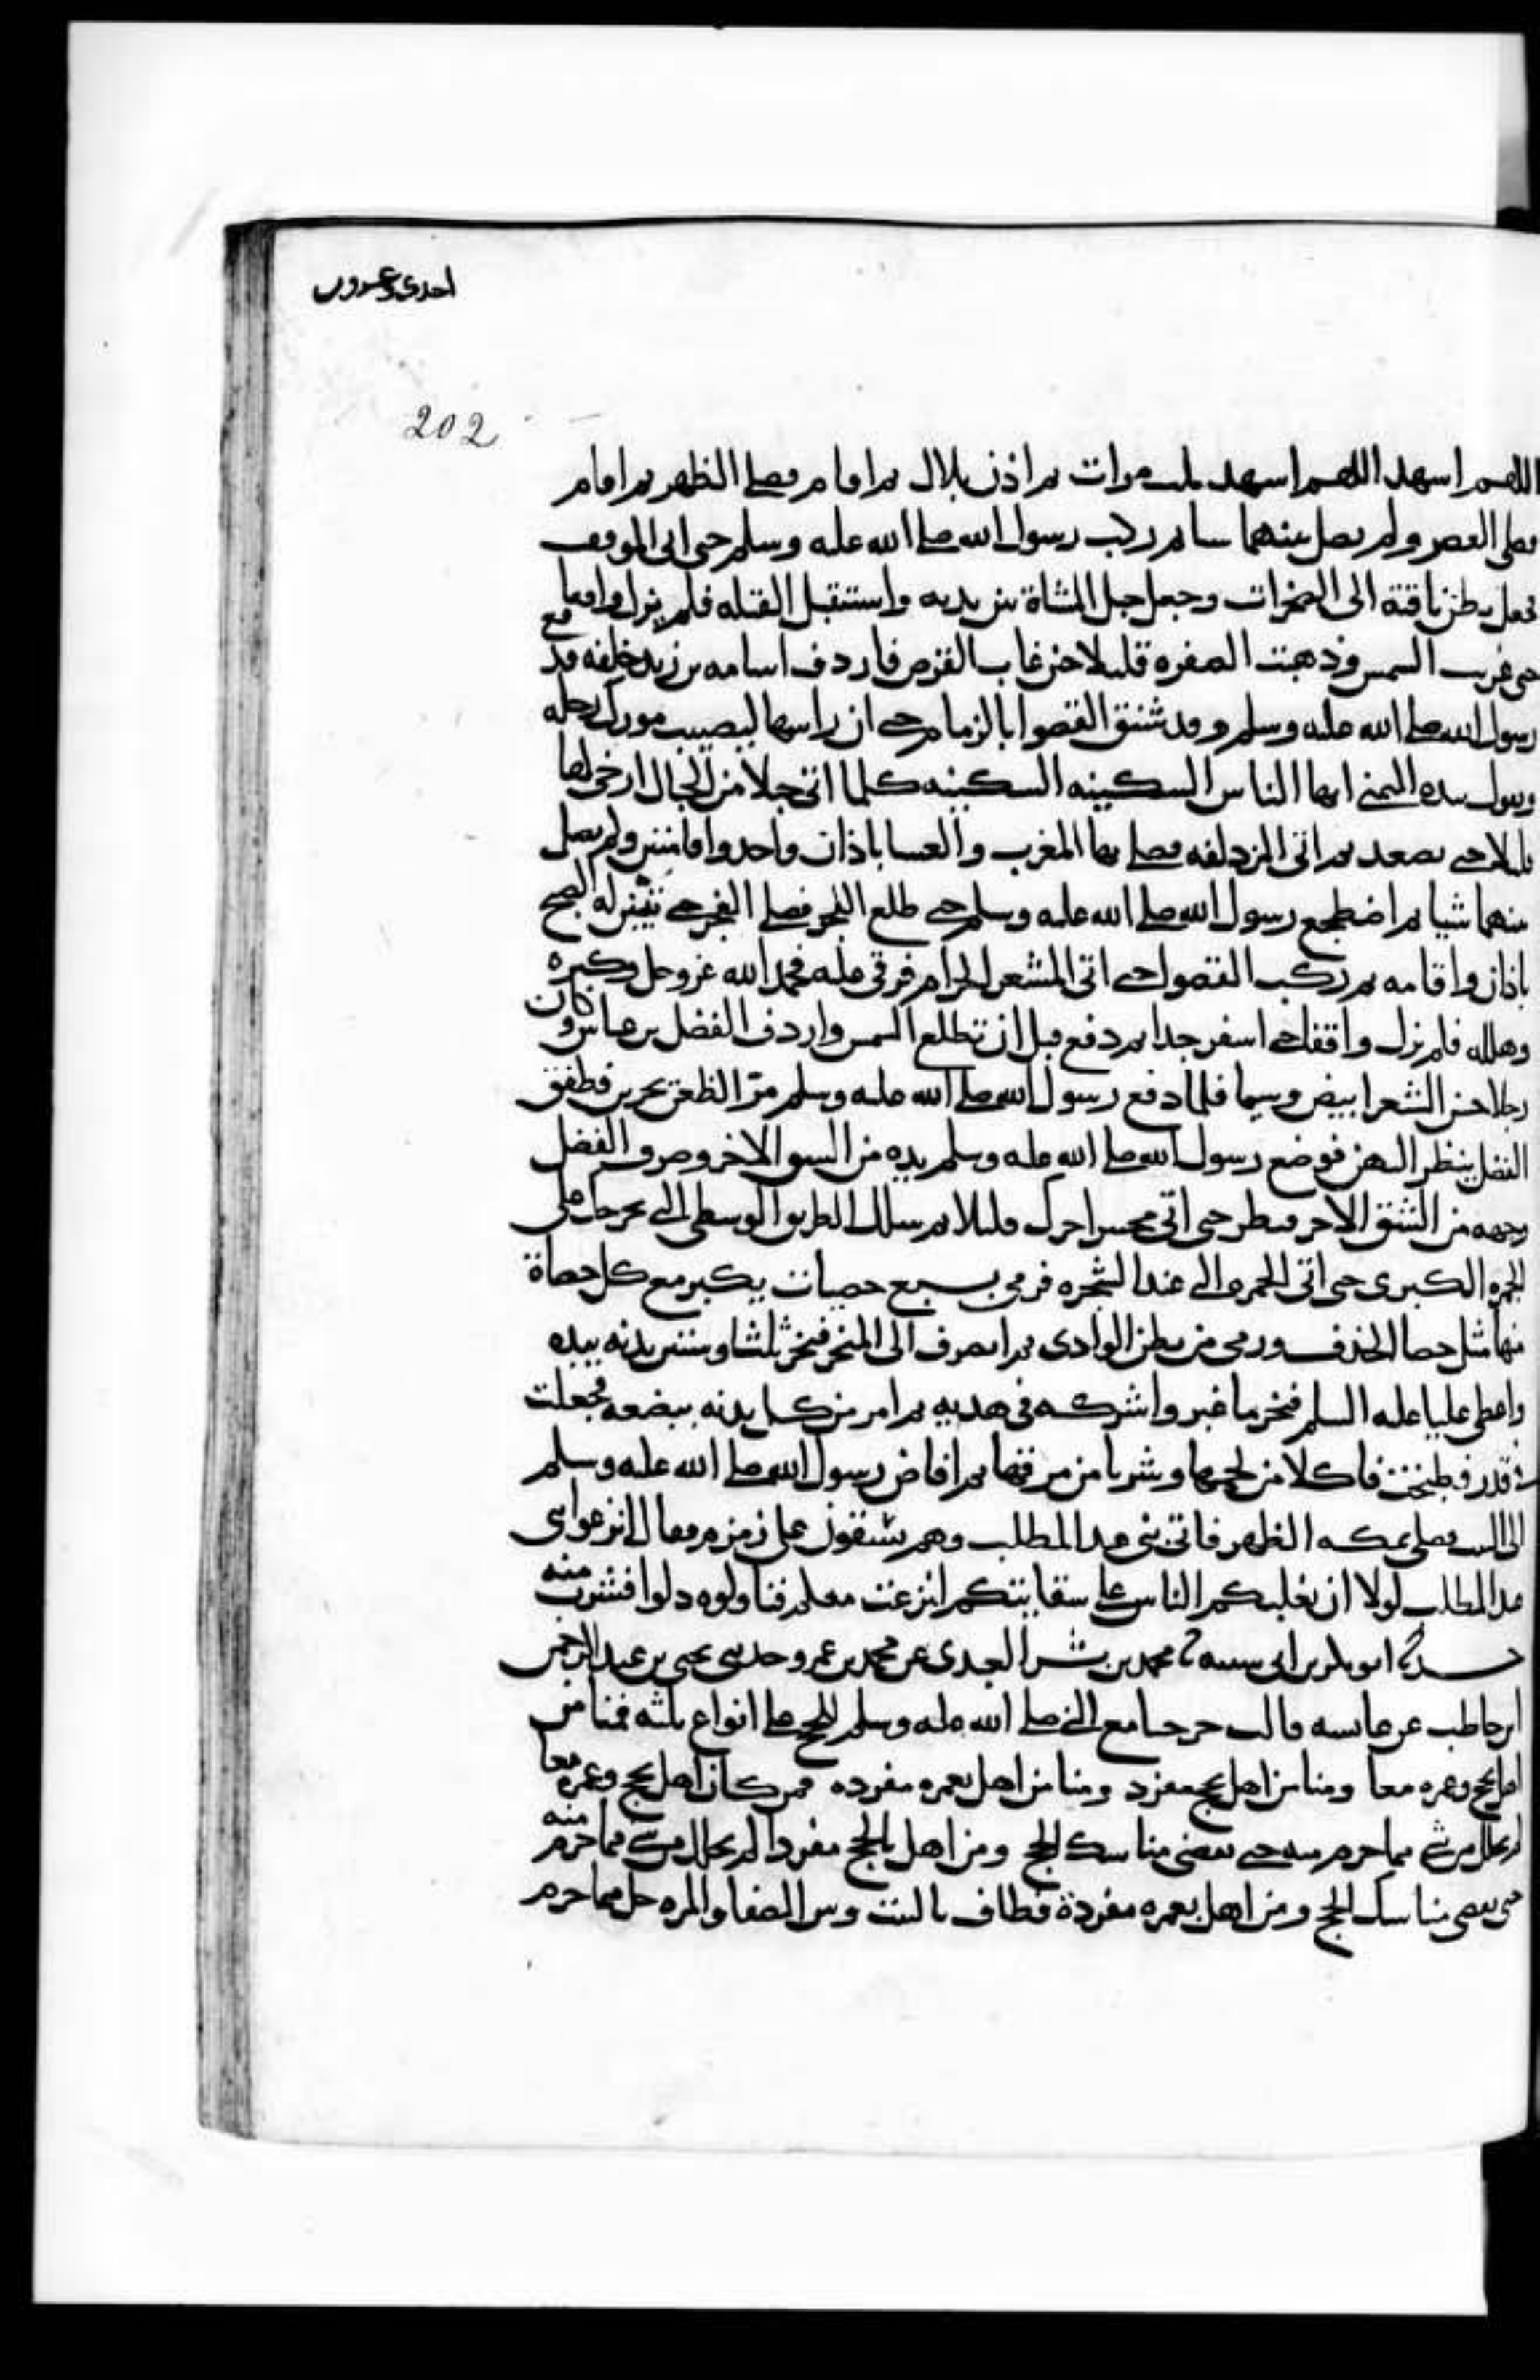 احدى وعشرون
202
اللهم اشهد اللهم اشهد ثلث مرات ثم اذن بلال ثم اقام فصلى الظهر ثم اقام
فصلى العصر ولم يصل بينهما شيا ثم ركب رسول الله صلى الله عليه وسلم حتى اتى الموقف
فجعل بطن ناقته الى الصخرات وجعل حبل المشاة بين يديه واستقبل القبله فلم يزل واقفا
حتى غربت الشمس وذهبت الصفره قليلا حين غاب القرص فاردف اسامه بن زيد خلفه فدفع
رسول الله صلى الله عليه وسلم وقد شنق القصوا بالزمام حتى ان راسها ليصيب مورك رحله
ويقول بيده اليمنى ايها الناس السكينه السكينه كلما اتى حبلا من الحبال ارخى لها
قليلا حتى تصعد ثم اتى المزدلفه فصلى بها المغرب والعشا باذان واحد واقامتين ولم يصل
بينهما شيا ثم اضطجع رسول الله صلى الله عليه وسلم حتى طلع الفجر فصلى الفجر حتى تبين له الصبح
باذان واقامه ثم ركب القصوا حتى اتى المشعر الحرام فرقى عليه فحمد الله عز وجل وكبره
وهلله فلم يزل واقفا حتى اسفر جدا ثم دفع قبل ان تطلع الشمس واردف الفضل بن عباس وكان
رجلا حسن الشعر ابيض وسيما فلما دفع رسول الله صلى الله عليه وسلم مر الظعن يجرين فطفق
الفضل ينظر اليهن فوضع رسول الله صلى الله عليه وسلم يده من الشق الاخر وصرف الفضل
وجهه من الشق الاخر ينظر حتى اتى محسرا حرك قليلا ثم سلك الطريق الوسطى التى تخرجك على
الجمره الكبرى حتى اتى الجمره التى عند الشجره فرمى بسبع حصيات يكبر مع كل حصاة
منها مثل حصا الخذف ورمى من بطن الوادى ثم انصرف الى المنحر فنحر ثلثا وستين بدنه بيده
واعطى عليا عليه السلم فنحر ما غبر واشركه فى هديه ثم امر من كل بدنه ببضعه فجعلت
فى قدر فطبخت فاكلا من لحمها وشربا من مرقها ثم افاض رسول الله صلى الله عليه وسلم
الى البيت فصلى بمكه الظهر فاتى بنى عبد المطلب وهم يسقون على زمزم فقال انزعوا بنى
عبد المطلب لولا ان يغلبكم الناس على سقايتكم لنزعت معكم فناولوه دلوا فشرب منه
حدثنا ابو بكر بن ابى شيبه ثنا محمد بن بشر العبدى عن محمد بن عمرو حدثنى يحيى بن عبد الرحمن
ابن حاطب عن عايشه قالت خرجنا مع النبى صلى الله عليه وسلم للحج على انواع ثلثه فمنا من
اهل بحج وعمره معا ومنا من اهل بحج مفرد ومنا من اهل بعمره مفرده فمن كان اهل بحج وعمره معا
لم يحلل من شى مما حرم منه حتى يقضى مناسك الحج ومن اهل بالحج مفردا لم يحلل من شى مما حرم منه
حتى يقضى مناسك الحج ومن اهل بعمره مفردة فطاف بالبيت وبين الصفا والمره حل مما حرم